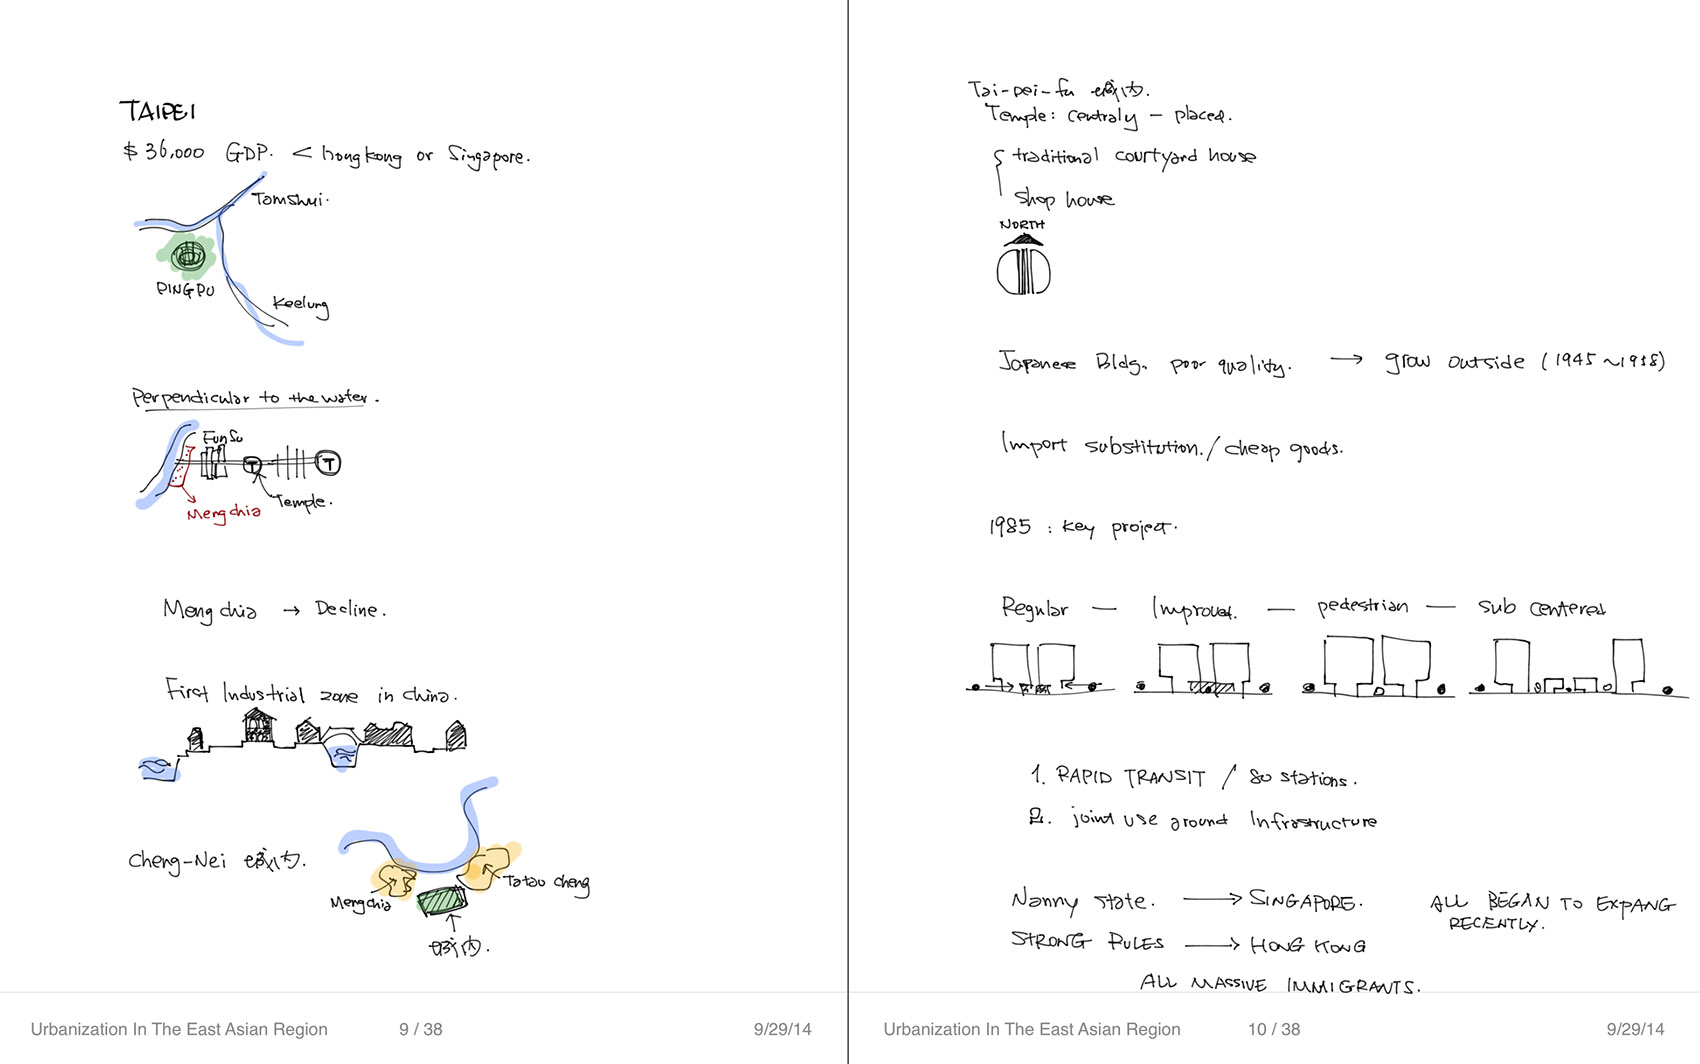 TAIPEI
$ 36,000 GDP. < hongkong or Singapore.
Tamshui.
PINGPU
Keelung
Perpendicular to the water.
T
T
Temple.
Mengchia
Mengchia → Decline.
First Industrial zone in china.
Cheng-Nei 城内.
Mengchia
Tatau cheng
城内.
Urbanization In The East Asian Region 9 / 38 9/29/14
Tai-pei-fu 城内.
Temple: centraly - placed.
traditional courtyard house
shop house
NORTH
Japanese Bldg. poor quality. → grow outside (1945 ~
Import substitution. / cheap goods.
1985 : key project.
Regular — Improved. — pedestrian — sub centered
1. RAPID TRANSIT / 80 stations.
2. joint use around Infrastructure
Nanny state. → SINGAPORE.
STRONG RULES → HONG KONG
ALL BEGAN TO EXPANG
RECENTLY.
ALL MASSIVE IMMIGRANTS.
Urbanization In The East Asian Region 10 / 38 9/29/14